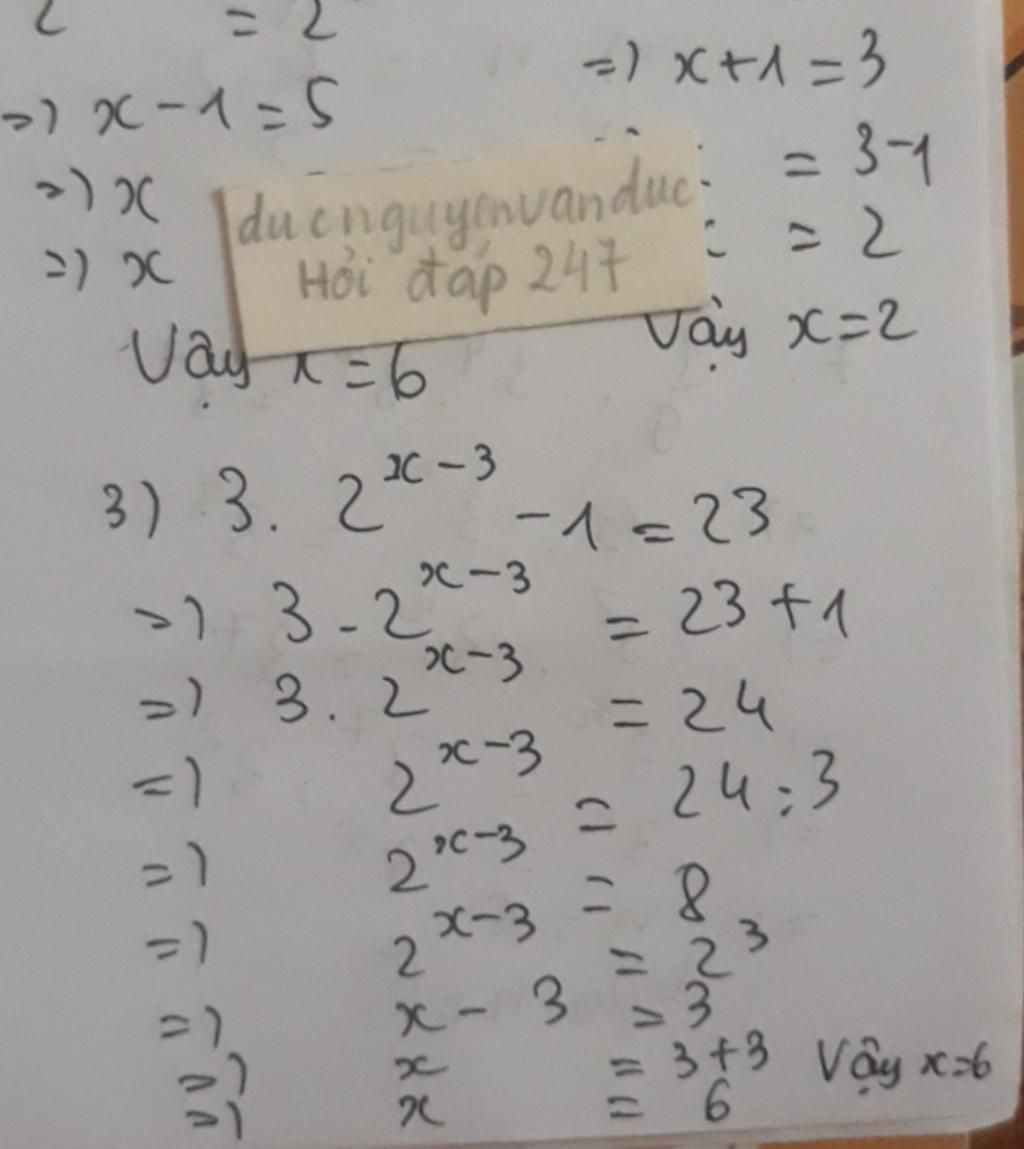 = 2
=) x - 1 = 5
=) x
=) x
Vậy x = 6
=) x + 1 = 3
= 3 - 1
= 2
Vậy x = 2
ducnguyenvanduc
Hỏi đáp 247
3) 3. 2^{x-3} - 1 = 23
=) 3 . 2^{x-3} = 23 + 1
=) 3 . 2^{x-3} = 24
=) 2^{x-3} = 24 : 3
=) 2^{x-3} = 8
=) 2^{x-3} = 2^3
=) x - 3 = 3
=) x = 3 + 3 Vậy x = 6
=) x = 6